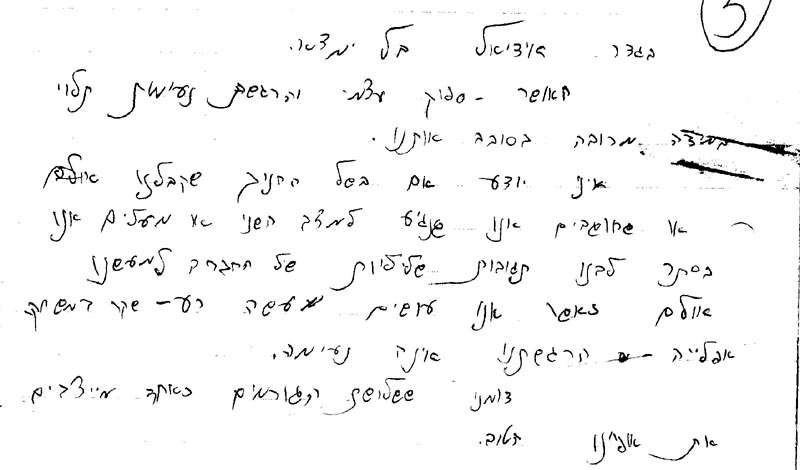 3
בגדר אידיאל בל ימצא.
האושר - סיפוק עצמי והרגשת נעימות תלוי
במידה מרובה בסובב אותנו.
איני יודע אם בשל החינוך שקבלנו אולם
או שחושבים אנו שנגיע למצב השני או מעלים אנו
בסתר לבנו תגובות שליליות של החברה למעשנו
אולם כאשר אנו עושים מעשה רע - שקר במשחק
אפלייה - הרגשתנו אינה נעימה.
דומני ששלושת הגורמים כאחד מייצבים
את אפינו הטוב.